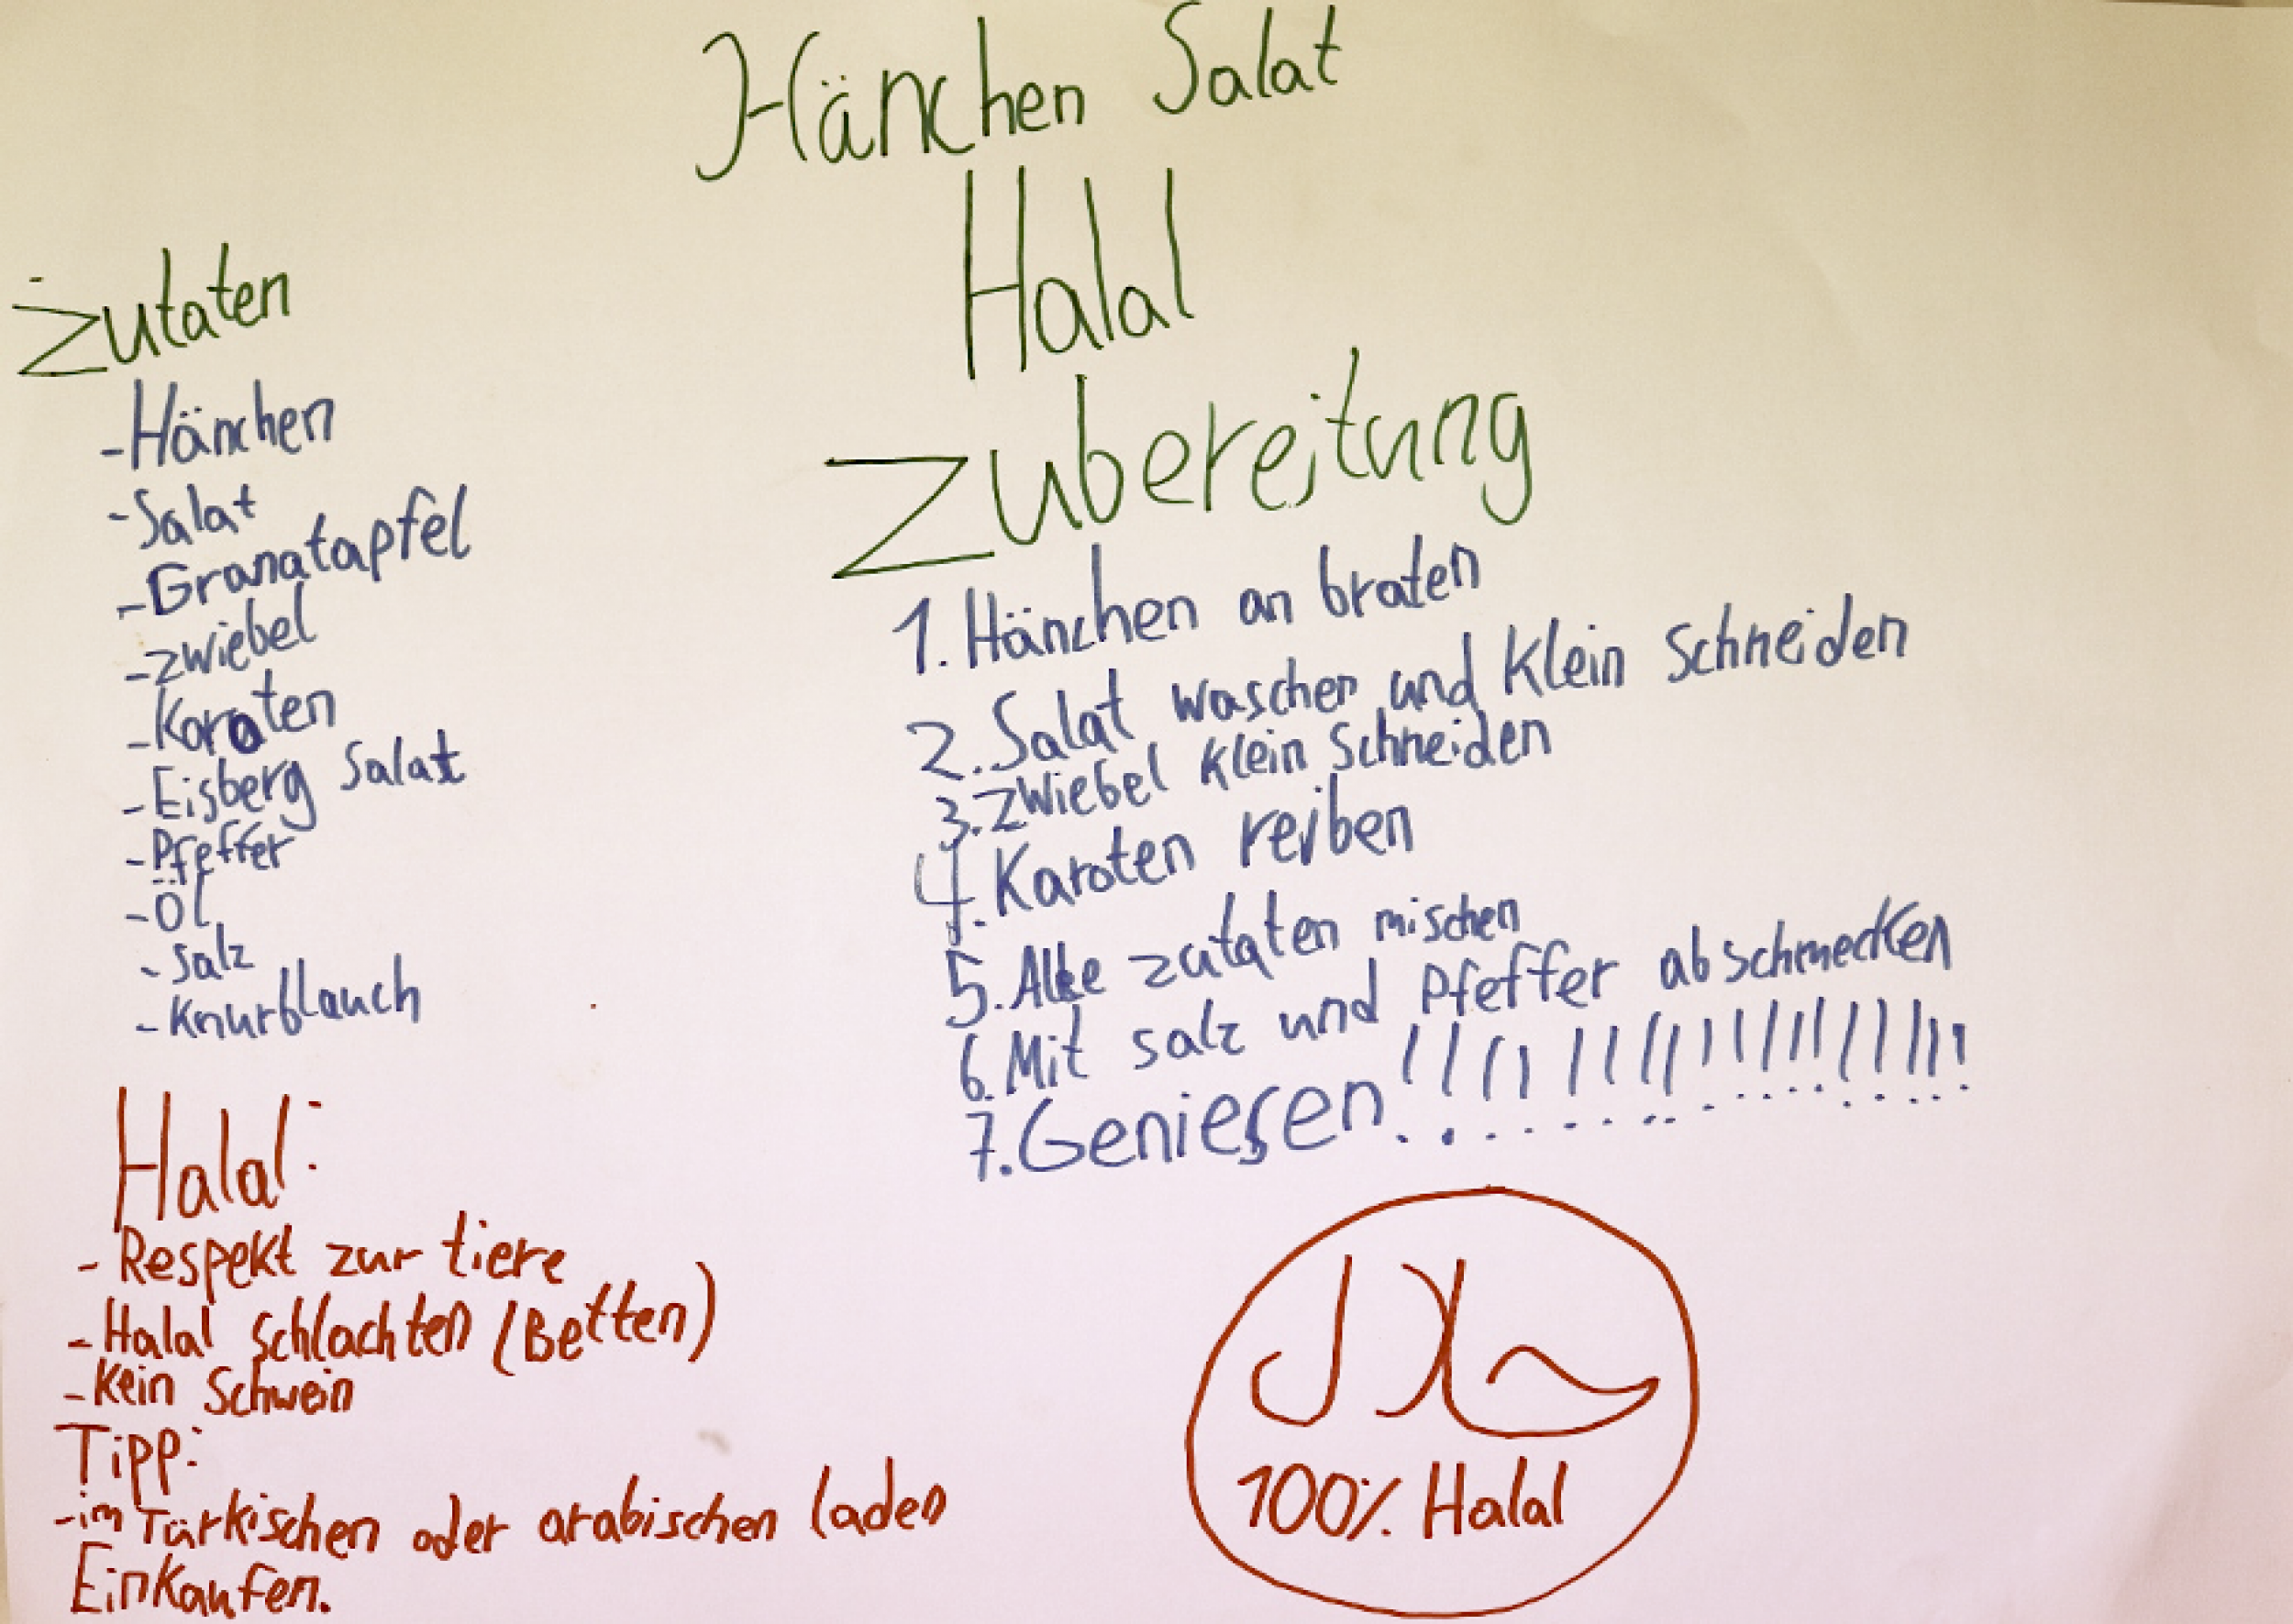 Hänchen Salat
Halal
Zutaten
-Hänchen
-Salat
-Granatapfel
-zwiebel
-Koraten
-Eisberg Salat
-Pfeffer
-Öl
-Salz
-Knurblauch
Zubereitung
1. Hänchen an braten
2. Salat waschen und Klein Schneiden
3. Zwiebel Klein Schneiden
4. Karoten reiben
5. Alle zutaten mischen
6. Mit salz und Pfeffer abschmecken
7. Geniesen!!!!!!!!!!!!!!!!!!!!
Halal:
- Respekt zur tiere
- Halal schlachten (Betten)
- Kein Schwein
Tipp:
-im Türkischen oder arabischen laden
Einkaufen.
حلال
100% Halal